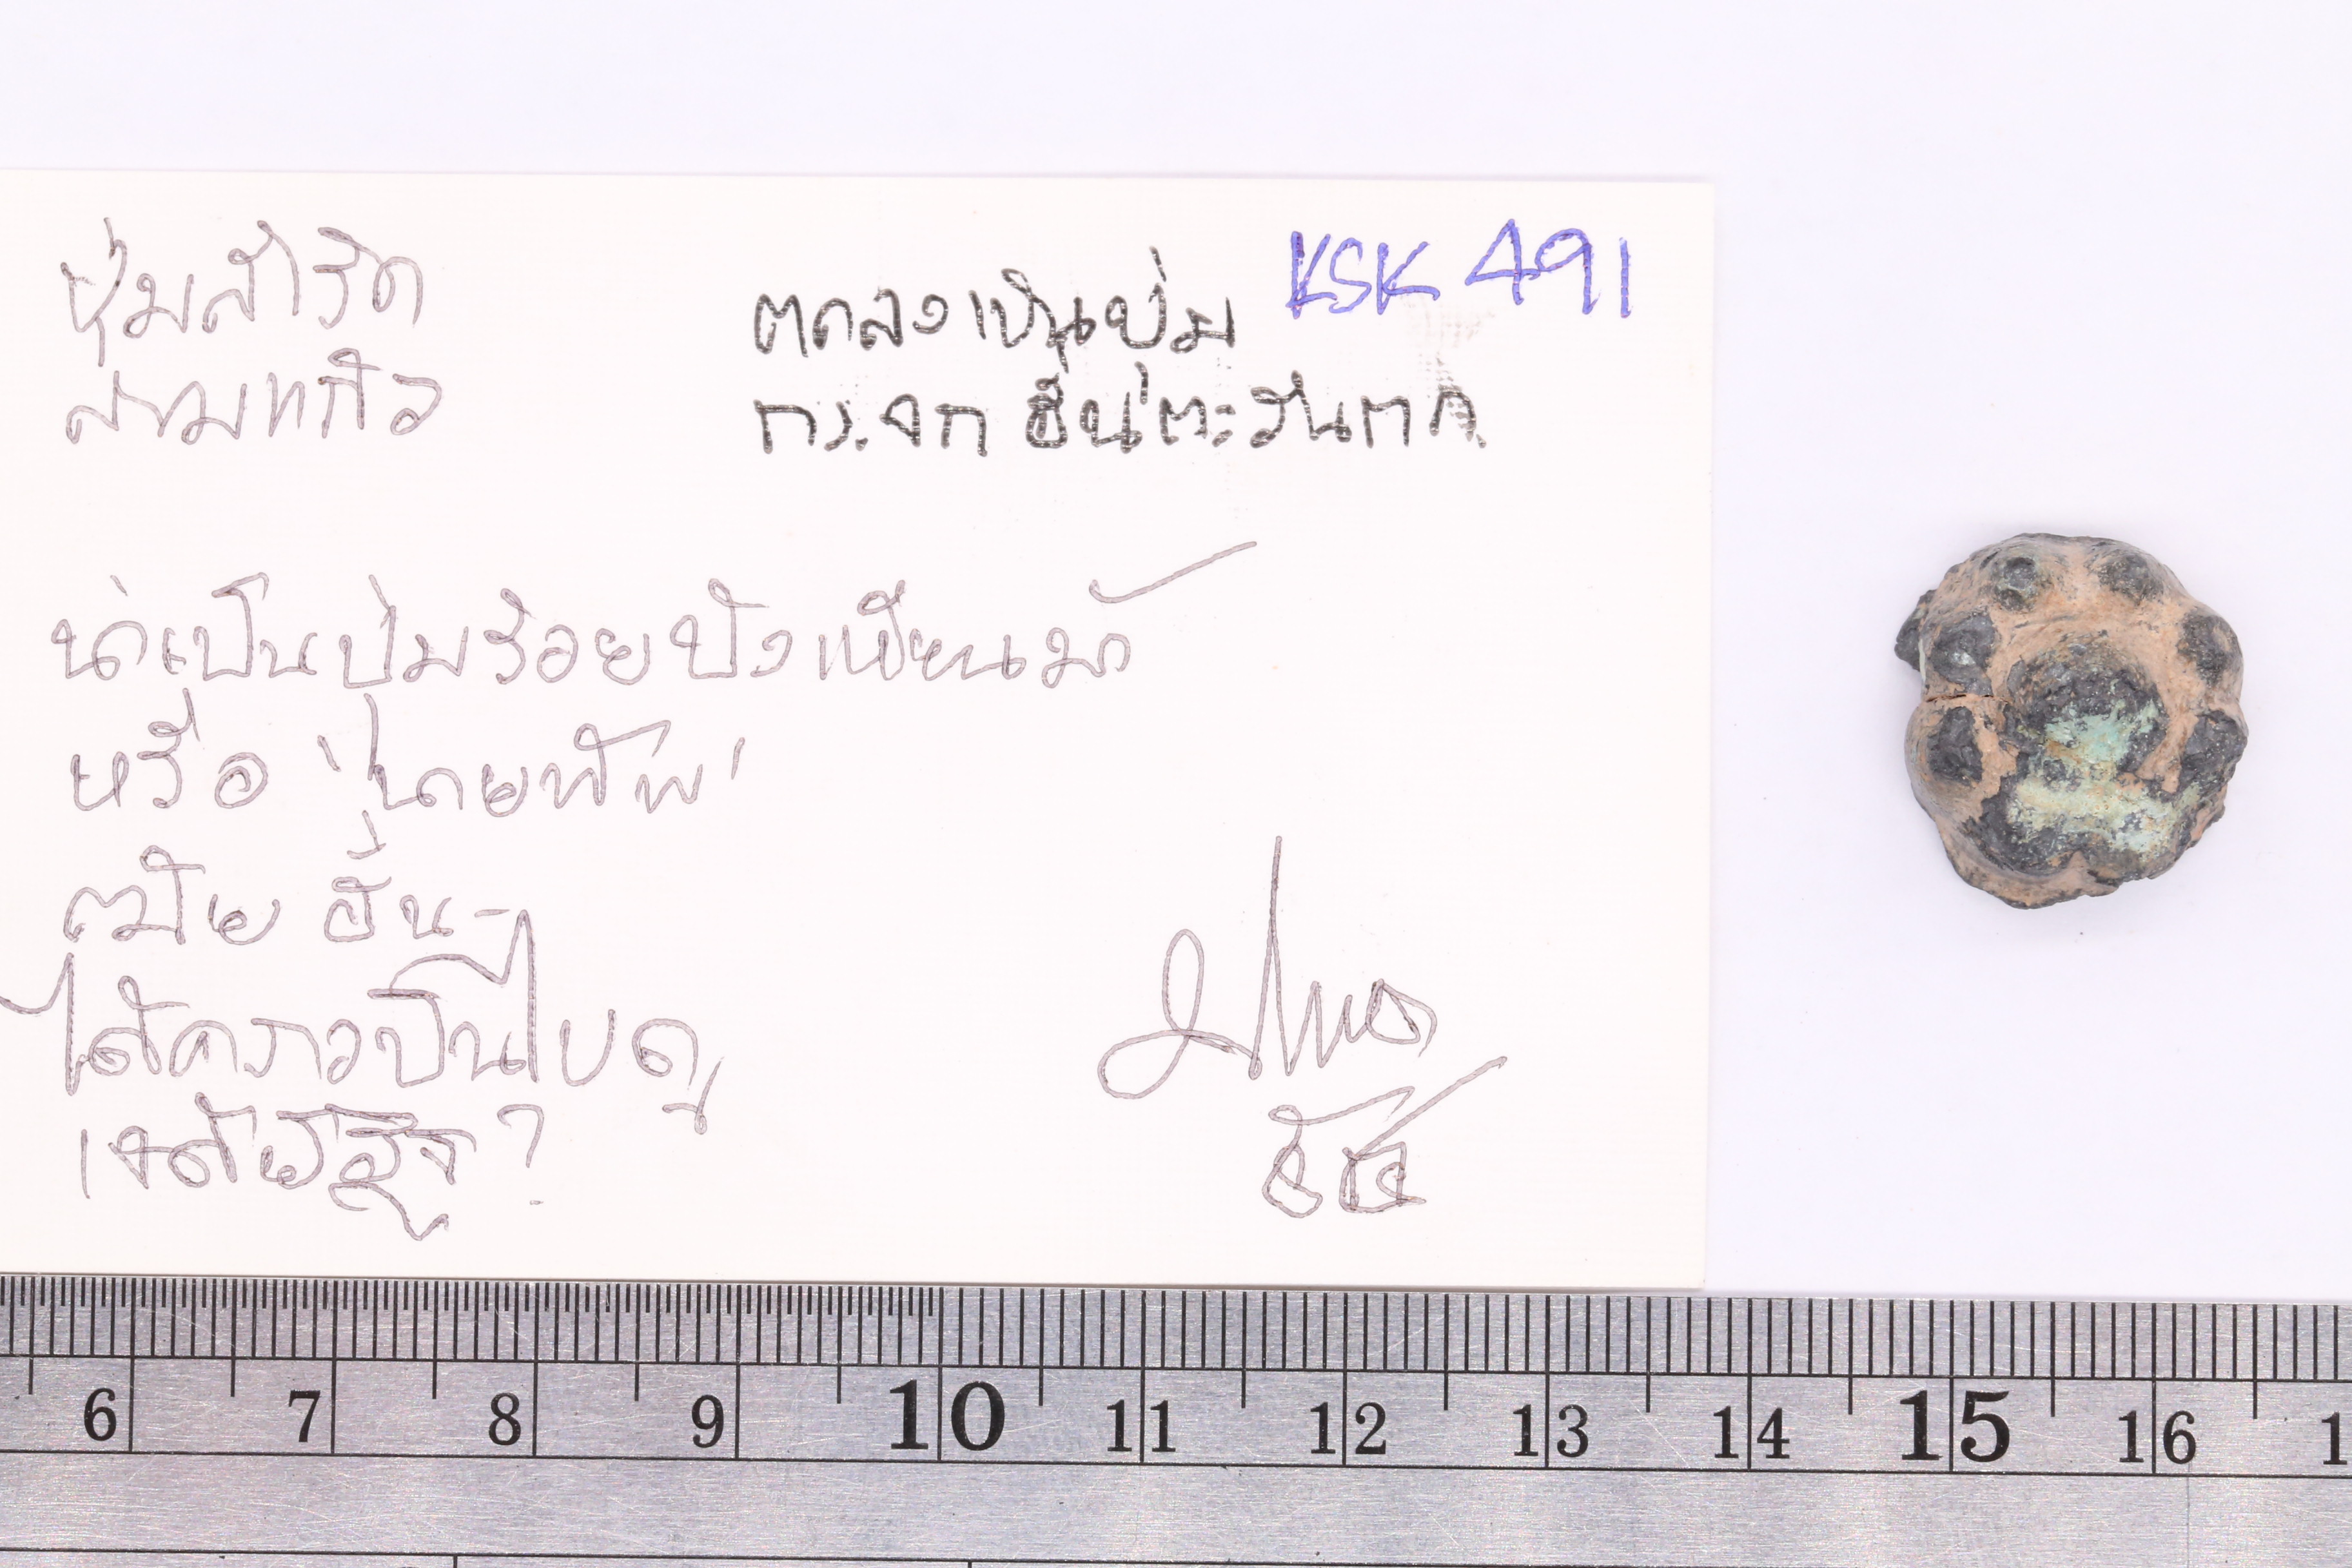 ปุ่มสำริด
สามแก้ว
KSK 491
ตกลงเป็นปุ่ม
กระจก ฮั่นตะวันตก
น่าเป็นปุ่มร้อยบังเหียนม้า
หรือ 'นายทัพ'
สมัย ฮั่น
ได้คราวปีนไปดู
เจดีย์อิฐ?
6 7 8 9 10 11 12 13 14 15 16 1